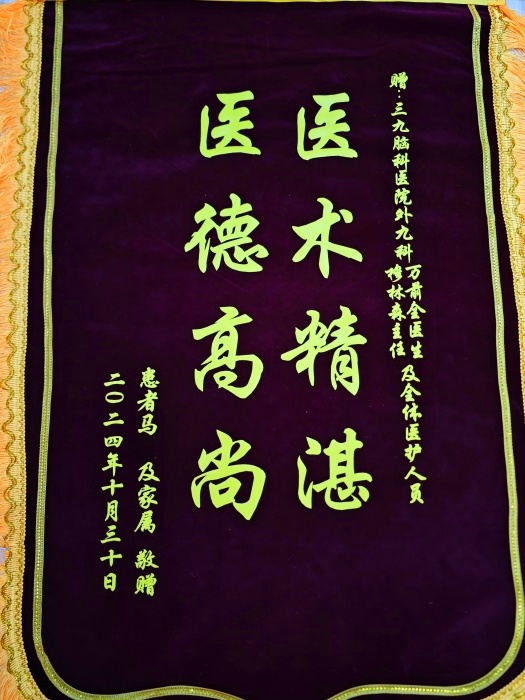 赠:三九脑科医院外九科
穆林森主任
万前全医生
及全体医护人员
医术精湛
医德高尚
患者马 及家属 敬赠
二〇二四年十月三十日